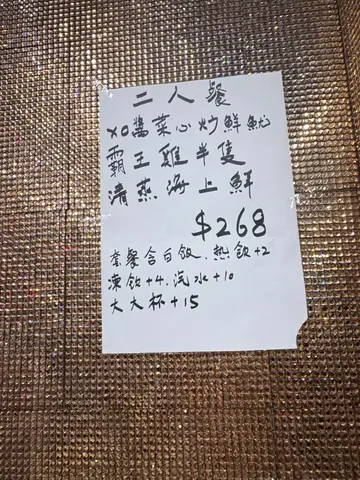 二人餐
XO醬菜心炒鮮魷
霸王雞半隻
清燕海上鮮
$268
套餐含白飯、熱飲+2
凍飲+4、汽水+10
大大杯+15